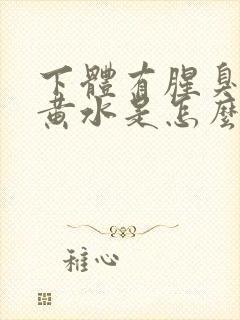 下體有腥臭
黃水是怎麼
稚心